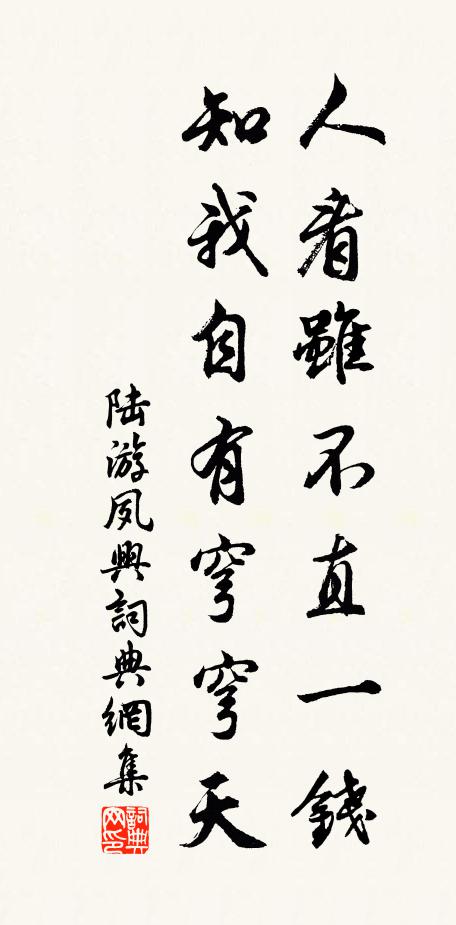 人看雖不直一錢
知我自有穹穹天
陸游夙興詞典網集
詞典网印